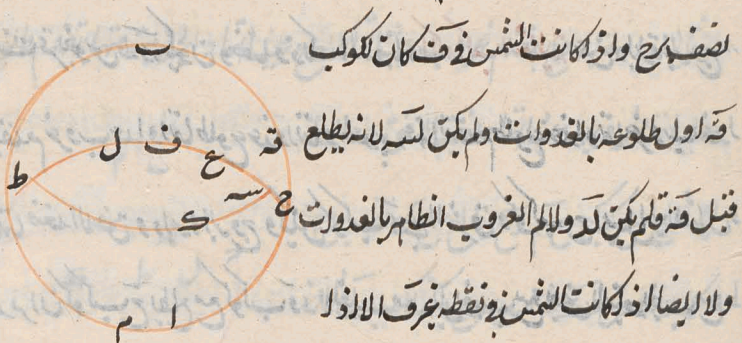 نصف برج واذا كانت الشمس في ف كان لكوكب
قه اول طلوعه بالغدوات ولم يكن لسه لانه يطلع
قبل قه فلم يكن له ولا لم الغروب الظاهر بالغدوات
ولا ايضا اذا كانت الشمس في نقطه غرف الا اذا
ب
قه
ع
ف
ل
ط
ح
سه
ك
ا
م